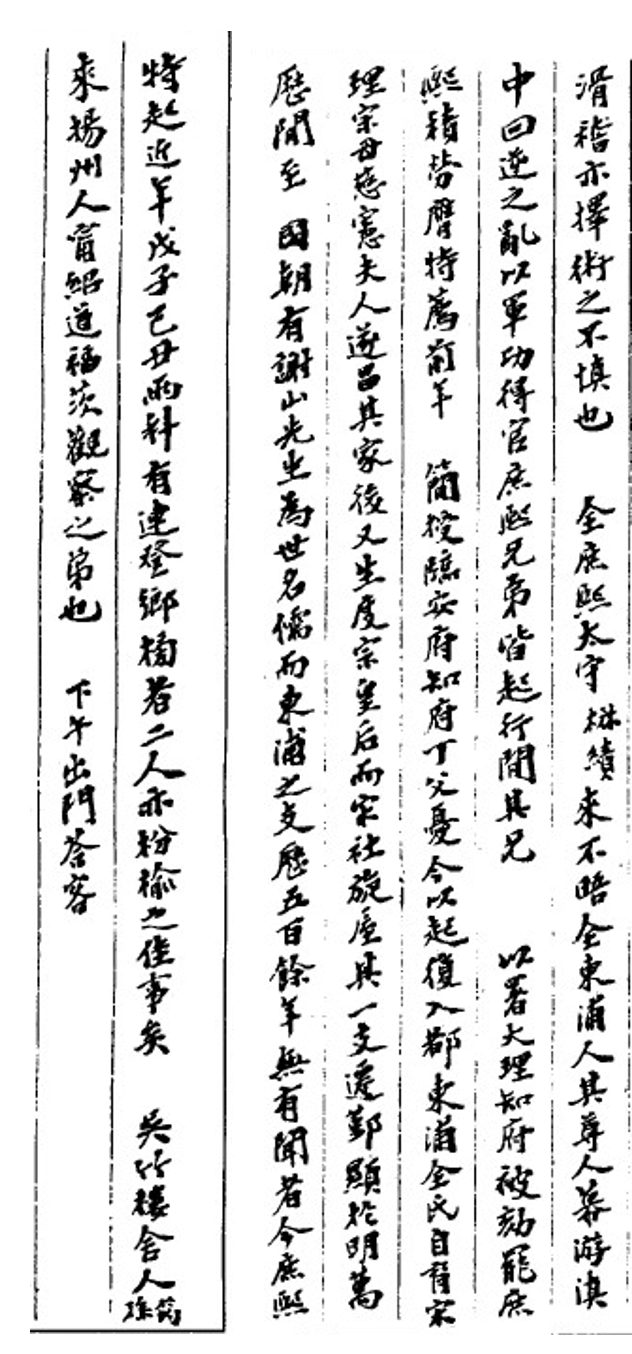 滑稽亦擇術之不慎也　全庶熙太守楙績來不晤全東浦人其尊人幕游滇
中回逆之亂以軍功得官庶熙兄弟皆起行間其兄　以署大理知府被劾罷庶
熙積勞膺特薦前年　簡授臨安府知府丁父憂今以起復入都東浦全氏自宋
理宗母慈憲夫人遂昌其家後又生度宗皇后而宋社旋屋其一支遷鄞顯於明萬
歷間至　國朝有謝山先生為世名儒而東浦之支歷五百餘年無有聞者今庶熙
特起近年戊子己丑兩科有連登鄉榜者二人亦枌榆之佳事矣　吳竹樓舍人筠孫
來揚州人甯紹道福茨觀察之弟也　下午出門荅客